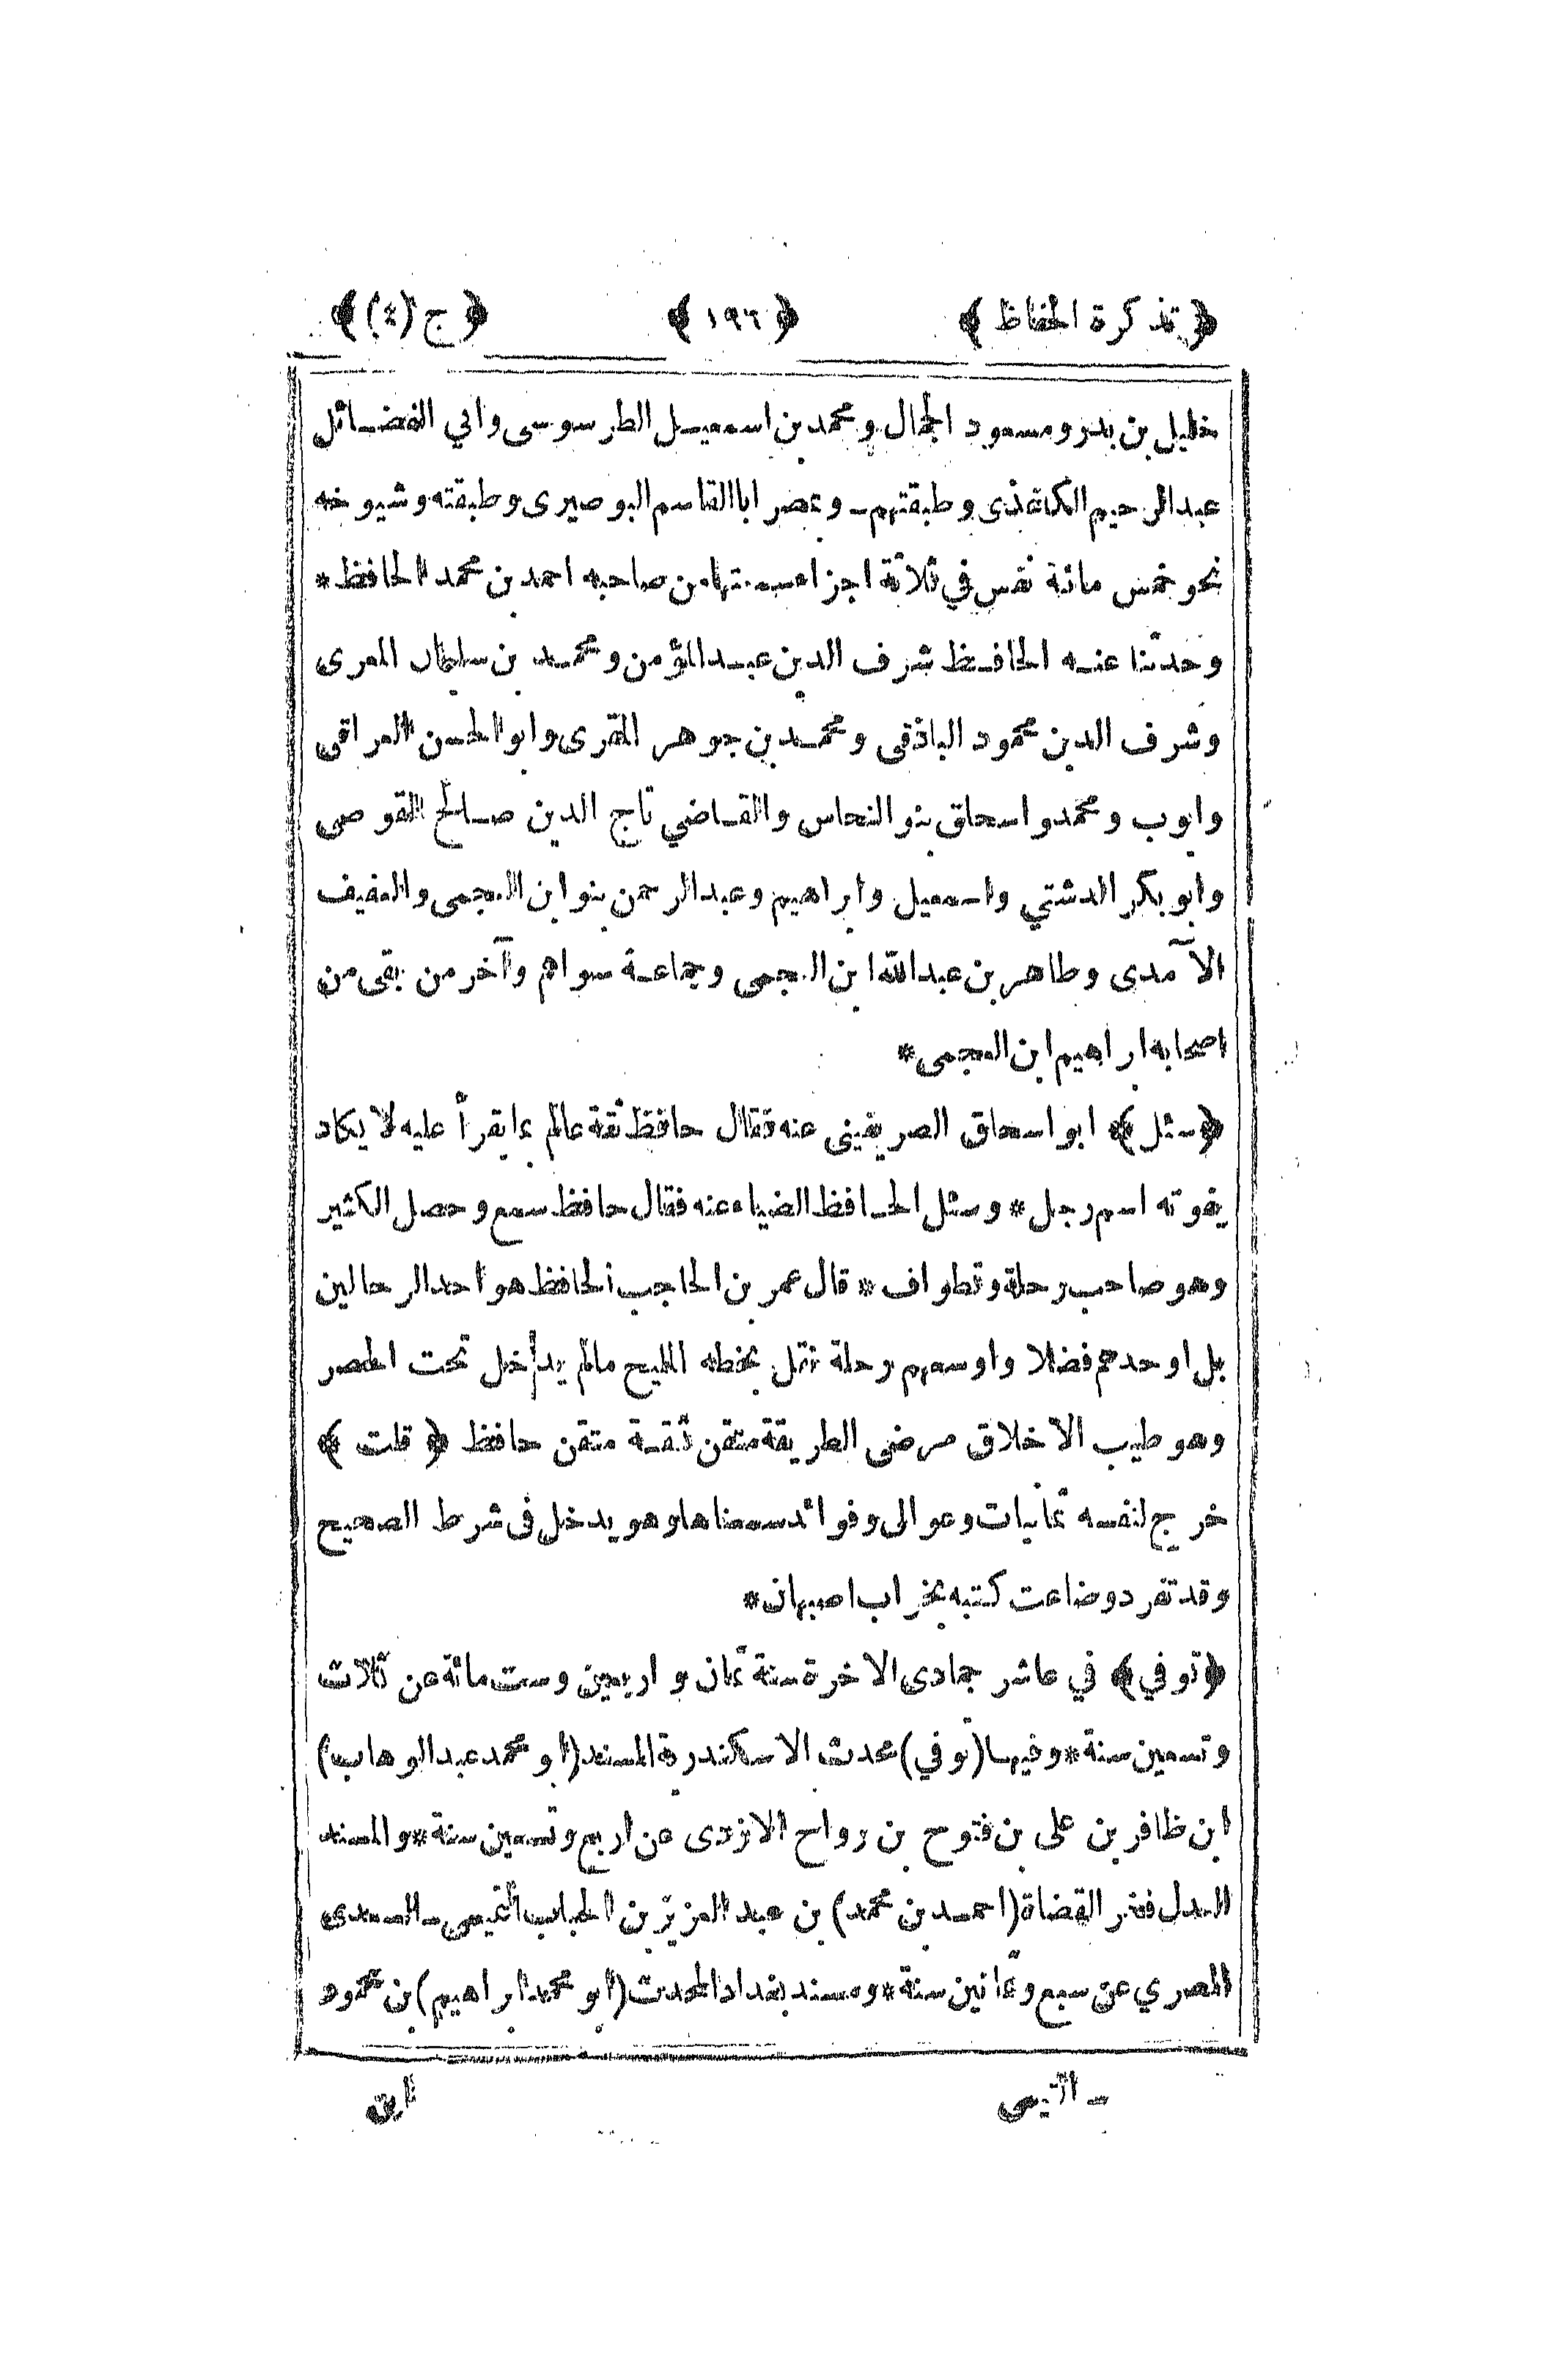 ﴿ تذكرة الحفاظ ﴾ ﴿ ١٩٦ ﴾ ﴿ ج (٤) ﴾
خليل بن بدر ومسعود الجمال ومحمد بن اسمعيل الطرسوسى وابي الفضائل
عبدالرحيم الكاغذى وطبقتهم ـ وبمصر ابا القاسم البوصيرى وطبقته وشيوخه
نحو خمس مائة نفس في ثلاثة اجزاء سمعتها من صاحبه احمد بن محمد الحافظ *
وحدثنا عنه الحافظ شرف الدين عبد المؤمن ومحمد بن سليمان المعرى
وشرف الدين محمود الباذقى ومحمد بن جوهر المقرى وابو الحسن العراقى
وايوب ومحمد واسحاق بنو النحاس والقاضي تاج الدين صالح القوصى
وابو بكر الدشتي واسمعيل وابراهيم وعبد الرحمن بنو ابن العجمى والعفيف
الآمدى وطاهر بن عبد الله ابن العجمى وجماعة سواهم وآخر من بقى من
اصحابه ابراهيم ابن العجمى *
﴿ سئل ﴾ ابو اسحاق الصريفينى عنه فقال حافظ ثقة عالم بما يقرأ عليه لا يكاد
يفوته اسم رجل * وسئل الحافظ الضياء عنه فقال حافظ سمع وحصل الكثير
وهو صاحب رحلة وتطواف * قال عمر بن الحاجب الحافظ هو احد الرحالين
بل اوحدهم فضلا واوسعهم رحلة نقل بخطه المليح مالم يدخل تحت الحصر
وهو طيب الاخلاق مرضى الطريقة متقن ثقة متقن حافظ ﴿ قلت ﴾
خرج لنفسه ثمانيات وعوالى وفوائد سمعناها وهو يدخل فى شرط الصحيح
وقد تفرد وضاعت كتبه بخراب اصبهان *
﴿ توفي ﴾ في عاشر جمادى الاخرة سنة ثمان واربعين وست مائة عن ثلاث
وتسعين سنة * وفيها (توفي) محدث الاسكندرية المسند (ابو محمد عبد الوهاب)
ابن ظافر بن على بن فتوح بن رواح الازدى عن اربع وتسعين سنة * والمسند
العدل فخر القضاة (احمد بن محمد) بن عبد العزيز بن الحباب التميمى ـ السعدى
المصري عن سبع وثمانين سنة * ومسند بغداد المحدث (ابو محمد ابراهيم) بن محمود
ـ التيمى ابن